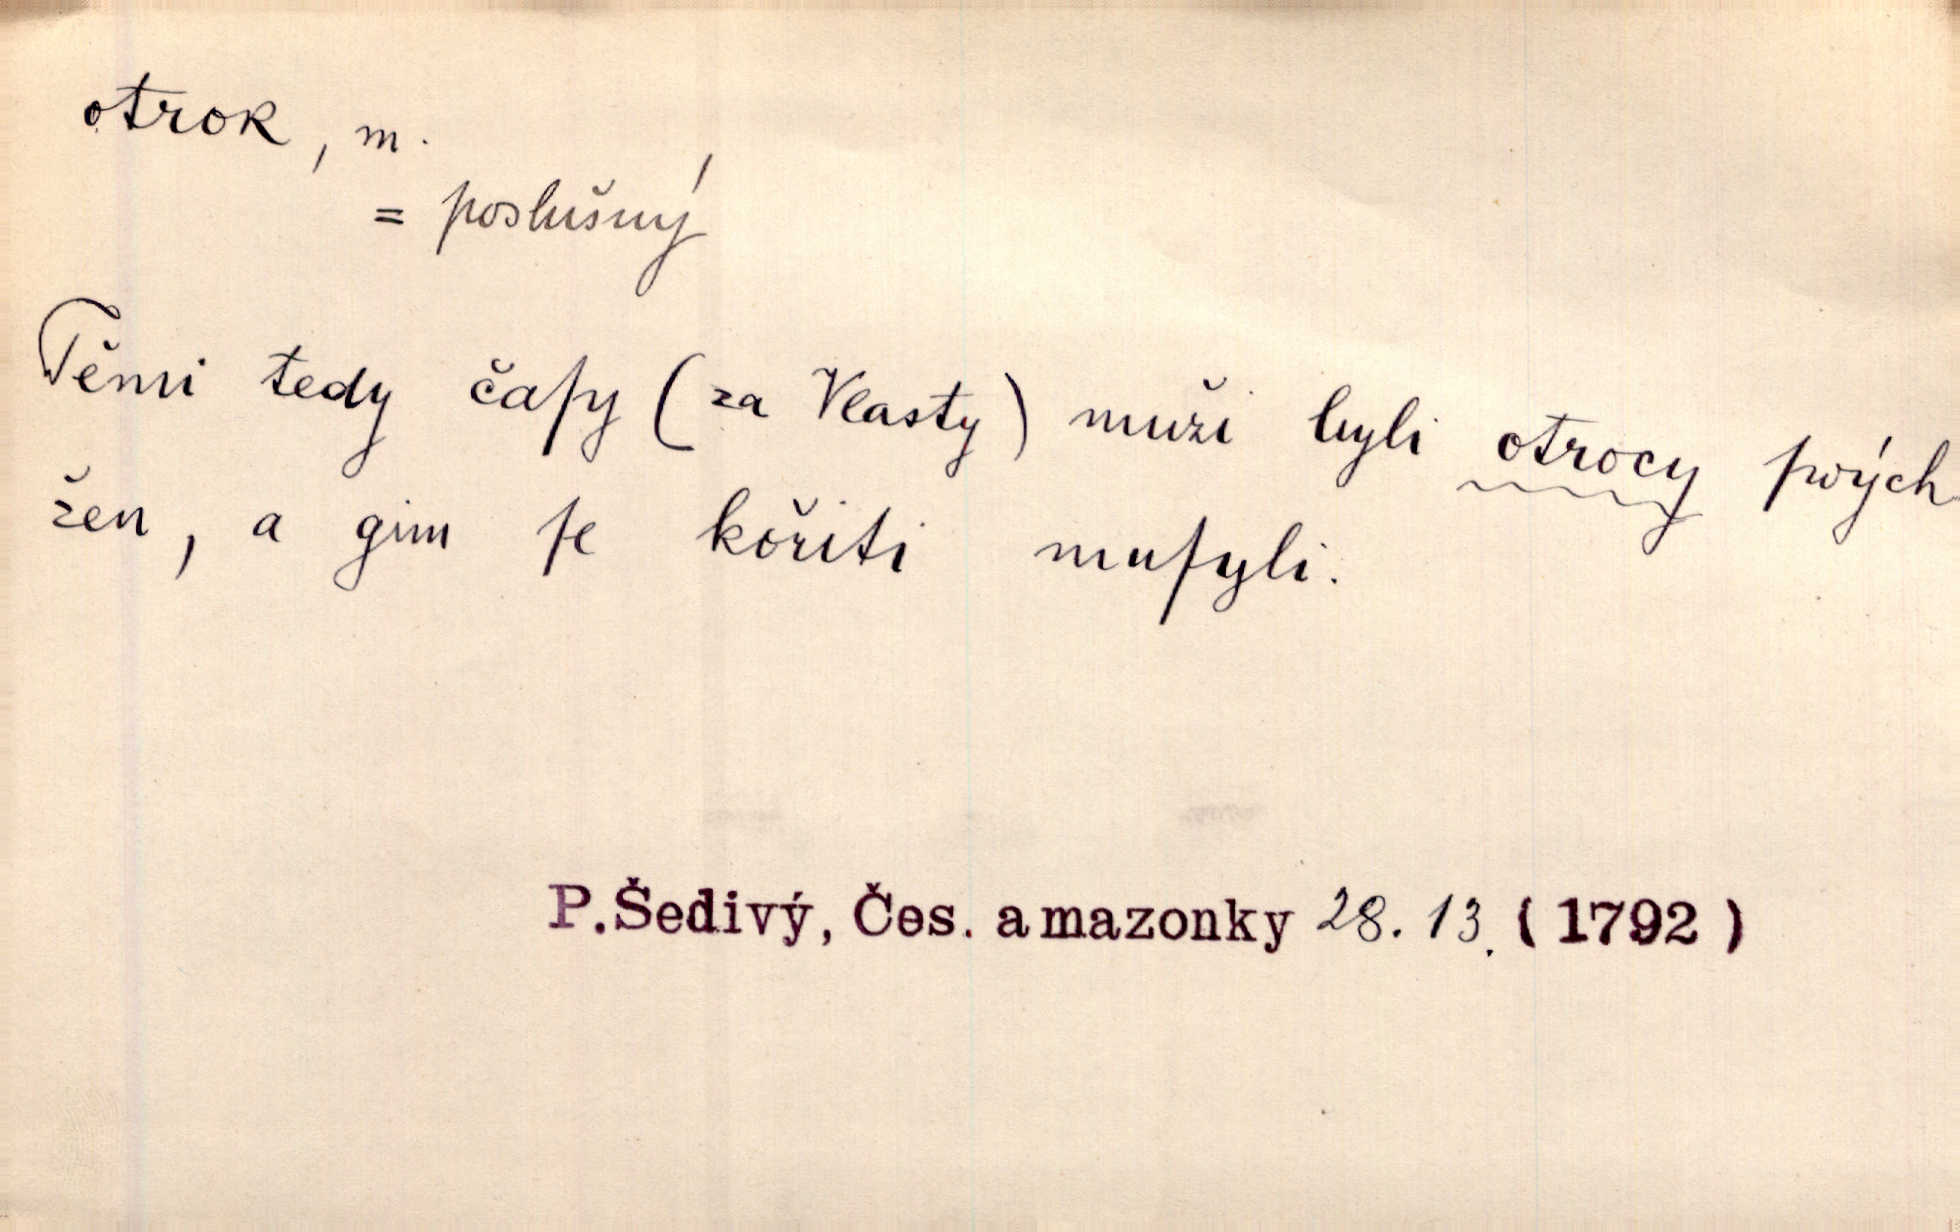 otrok, m.
= poslušný
Těmi tedy čaſy (za Vlasty) muži byli otrocy ſwých
žen, a gim ſe kořiti muſyli.
P.Šedivý, Čes. amazonky 28. 13. (1792)